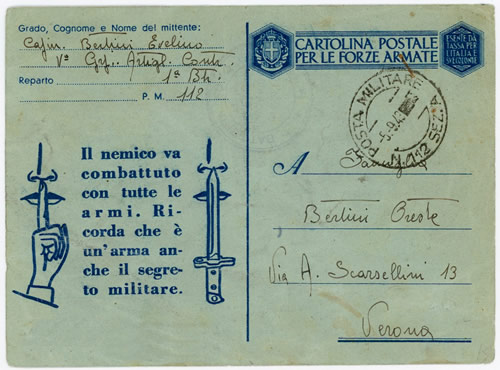 Grado, Cognome e Nome del mittente:
Bertini Evelino
Vº Gr.. Artigl. Contr.
1ª Btr.
Reparto
P. M. 112
Il nemico va
combattuto
con tutte le
armi. Ri-
corda che è
un'arma an-
che il segre-
to militare.
CARTOLINA POSTALE
PER LE FORZE ARMATE
ESENTE DA
TASSA PER
L'ITALIA E
SUE COLONIE
POSTA MILITARE
N.112 SEZ.A
A
Famiglia
Bertini Oreste
Via A. Scarsellini 13
Verona